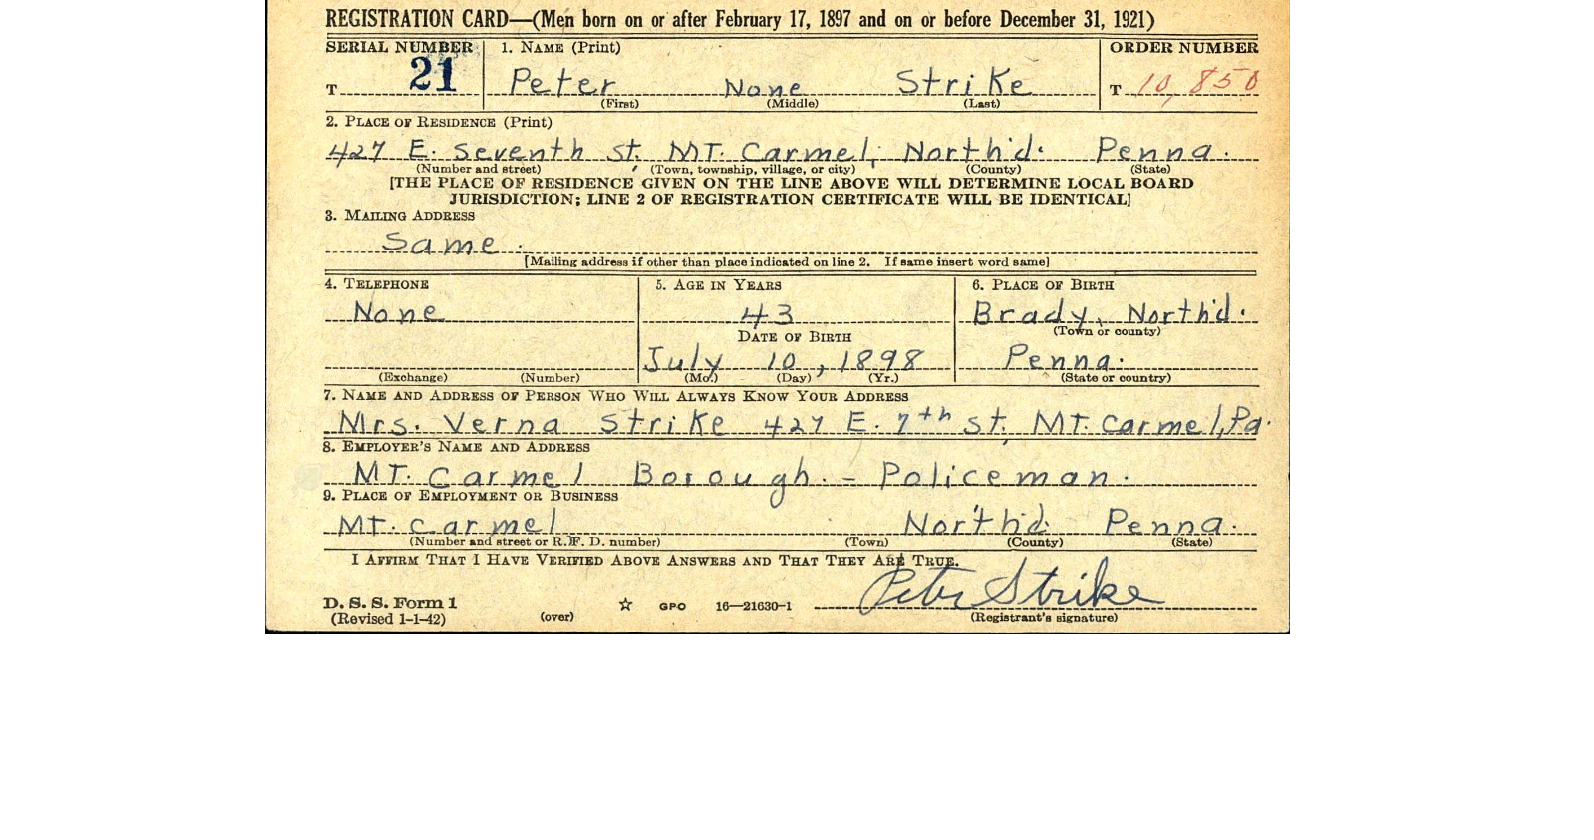 REGISTRATION CARD—(Men born on or after February 17, 1897 and on or before December 31, 1921)
SERIAL NUMBER 1. NAME (Print) ORDER NUMBER
T 21 Peter None Strike T 10,850
(First) (Middle) (Last)
2. PLACE OF RESIDENCE (Print)
427 E. Seventh St. MT. Carmel, North'd. Penna.
(Number and street) (Town, township, village, or city) (County) (State)
[THE PLACE OF RESIDENCE GIVEN ON THE LINE ABOVE WILL DETERMINE LOCAL BOARD
JURISDICTION; LINE 2 OF REGISTRATION CERTIFICATE WILL BE IDENTICAL]
3. MAILING ADDRESS
Same.
[Mailing address if other than place indicated on line 2. If same insert word same]
4. TELEPHONE 5. AGE IN YEARS 6. PLACE OF BIRTH
None 43 Brady, North'd.
DATE OF BIRTH (Town or county)
July 10, 1898 Penna.
(Exchange) (Number) (Mo.) (Day) (Yr.) (State or country)
7. NAME AND ADDRESS OF PERSON WHO WILL ALWAYS KNOW YOUR ADDRESS
Mrs. Verna Strike 427 E. 7th St. MT. Carmel, Pa.
8. EMPLOYER'S NAME AND ADDRESS
MT. Carmel Borough. - Policeman.
9. PLACE OF EMPLOYMENT OR BUSINESS
MT. Carmel North'd. Penna.
(Number and street or R. F. D. number) (Town) (County) (State)
I AFFIRM THAT I HAVE VERIFIED ABOVE ANSWERS AND THAT THEY ARE TRUE.
Peter Strike
D. S. S. Form 1 ☆ GPO 16—21630-1
(Revised 1-1-42) (over) (Registrant's signature)